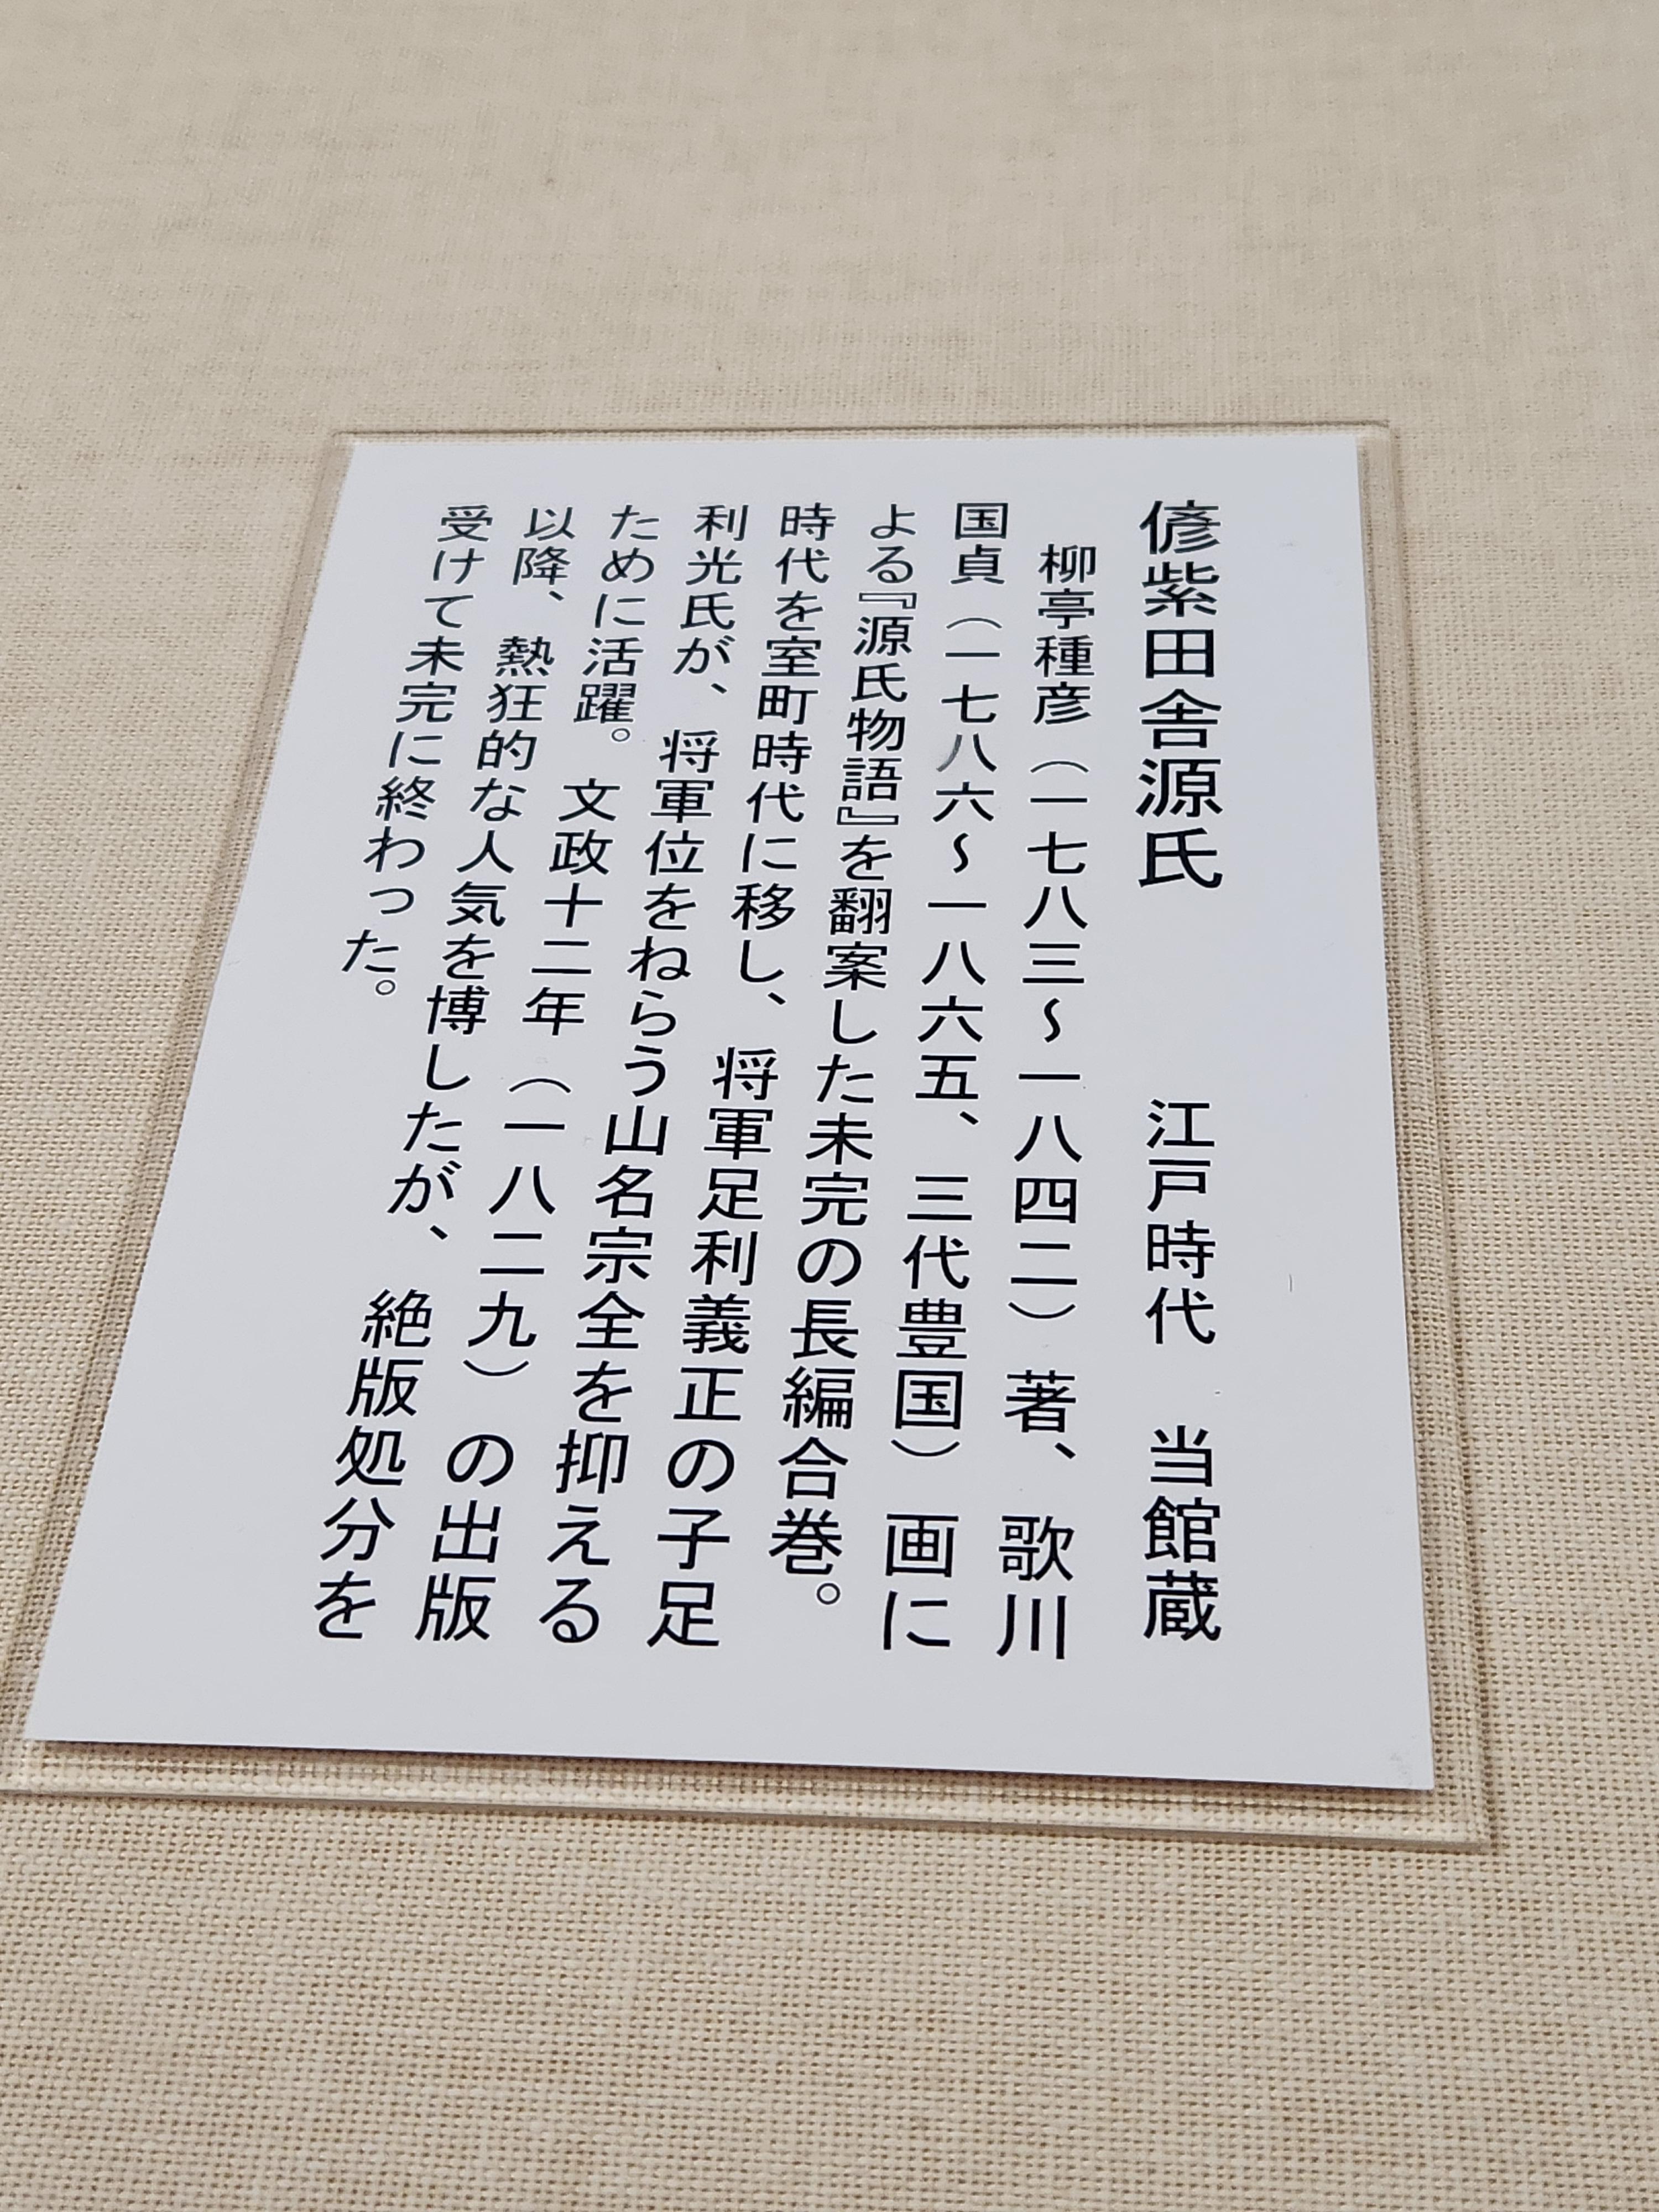 偐紫田舎源氏　江戸時代　当館蔵
柳亭種彦（一七八三〜一八四二）著、歌川
国貞（一七八六〜一八六五、三代豊国）画に
よる『源氏物語』を翻案した未完の長編合巻。
時代を室町時代に移し、将軍足利義正の子足
利光氏が、将軍位をねらう山名宗全を抑える
ために活躍。文政十二年（一八二九）の出版
以降、熱狂的な人気を博したが、絶版処分を
受けて未完に終わった。